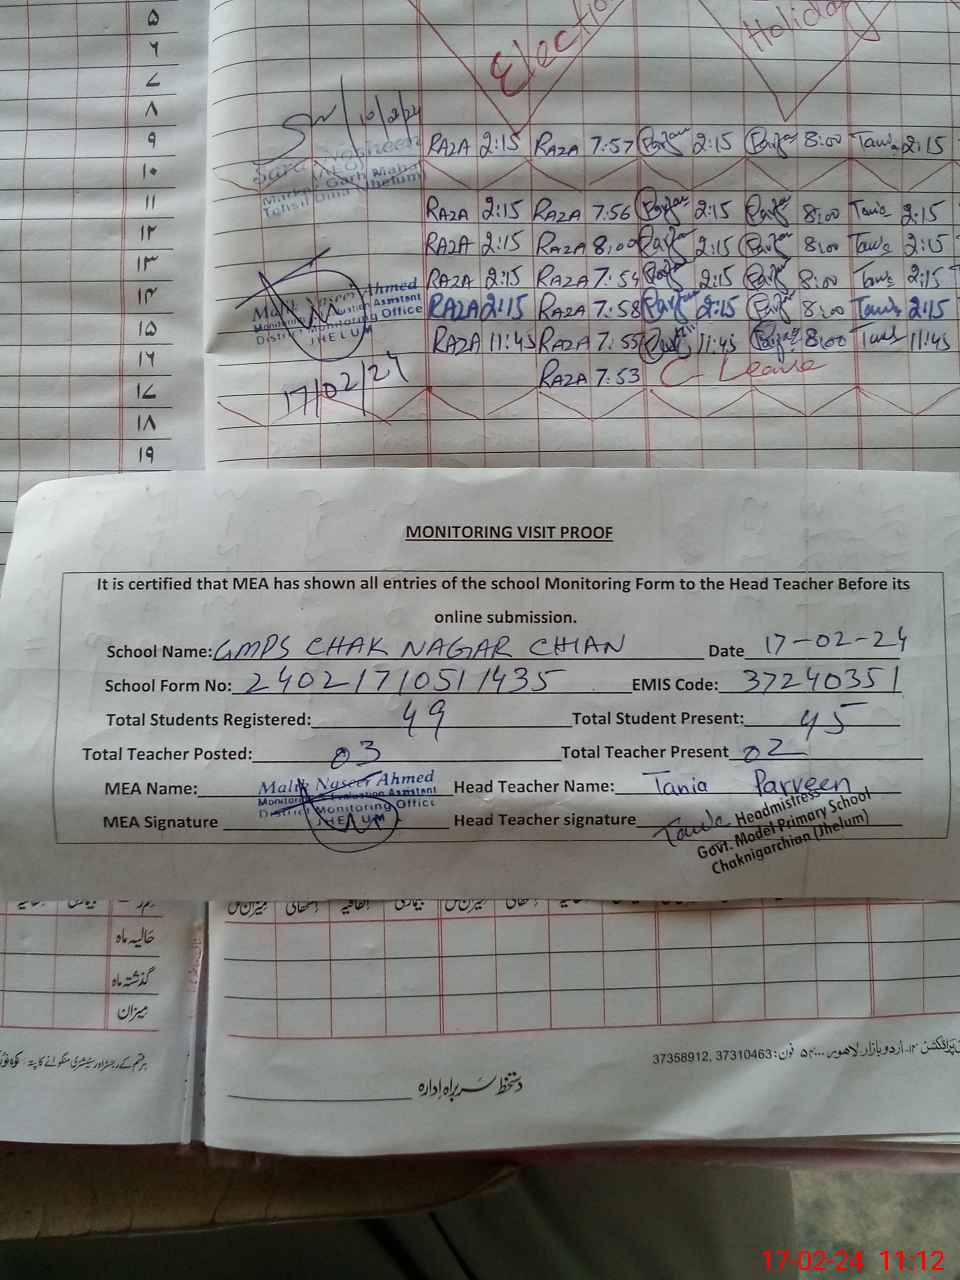 Election
Holiday
۵
۶
۷
۸
10/2/24
۹ RAZA 2:15 RAZA 7:57 2:15 8:00 Tania 2:15
۱۰
Tehsil Dina (Jhelum)
۱۱ RAZA 2:15 RAZA 7:56 2:15 8:00 Tania 2:15
۱۲ RAZA 2:15 RAZA 8:00 2:15 8:00 Tania 2:15
۱۳ RAZA 2:15 RAZA 7:54 2:15 8:00 Tania 2:15
Malik Naseer Ahmed
Monitoring & Evaluation Assistant
District Monitoring Office
JHELUM
۱۴ RAZA 2:15 RAZA 7:58 2:15 8:00 Tania 2:15
۱۵ RAZA 11:45 RAZA 7:55 11:45 8:00 Tania 11:45
۱۶ RAZA 7:53 C-Leave
17/02/24
۱۷
۱۸
۱۹
MONITORING VISIT PROOF
It is certified that MEA has shown all entries of the school Monitoring Form to the Head Teacher Before its
online submission.
School Name: GMPS CHAK NAGAR CHIAN Date 17-02-24
School Form No: 24021710511435 EMIS Code: 37240351
Total Students Registered: 49 Total Student Present: 45
Total Teacher Posted: 03 Total Teacher Present 02
MEA Name: Malik Naseer Ahmed Head Teacher Name: Tania Parveen
Monitoring & Evaluation Assistant
District Monitoring Office
JHELUM
MEA Signature Head Teacher signature Tania
Headmistress
Govt. Model Primary School
Chaknigarchian (Jhelum)
میزان کل اتفاقیہ بیماری میزان کل
حالیہ ماہ
گذشتہ ماہ
میزان
اردو بازار لاہور فون: 37310463, 37358912
دستخط سربراہ ادارہ
17-02-24 11:12